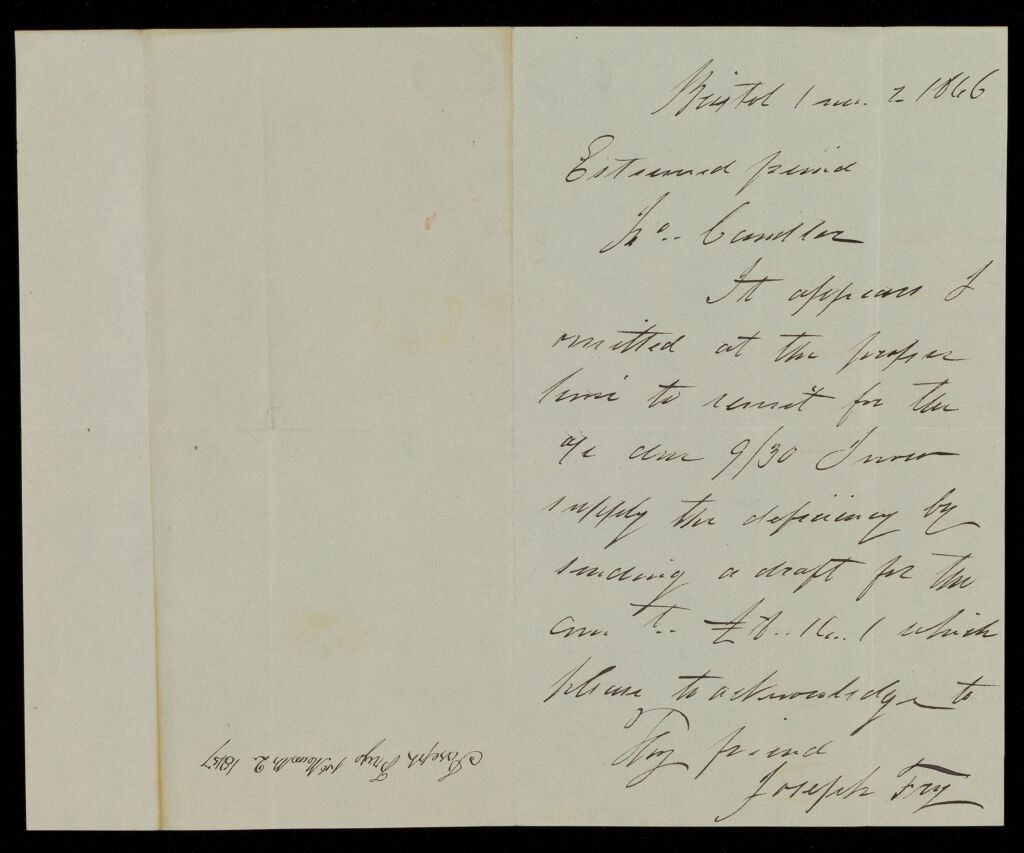 Bristol 1 mo. 2 1846
Esteemed friend
Jno.. Candler
It appears I
omitted at the proper
time to remit for the
a/c due 9/30 I now
supply the deficiency by
sending a draft for the
amt.. £8..16..1 which
please to acknowledge to
Thy friend
Joseph Fry
Joseph Frys 1st Month 2 1847